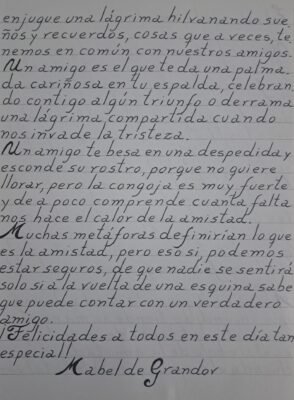 enjugue una lágrima hilvanando sue,
ños y recuerdos, cosas que a veces, te,
nemos en común con nuestros amigos.
Un amigo es el que te da una palma,
da cariñosa en tu espalda, celebran,
do contigo algún triunfo o derrama
una lágrima, compartida cuando
nos invade la tristeza.
Un amigo te besa en una despedida y
esconde su rostro, porque no quiere
llorar, pero la congoja es muy fuerte
y de a poco comprende cuanta falta
nos hace el calor de la amistad.
Muchas metáforas definirían lo que
es la amistad, pero eso si, podemos
estar seguros, de que nadie se sentirá
solo si a la vuelta de una esquina sabe
que puede contar con un verdadero
amigo.
¡Felicidades a todos en este día tan
especial!
Mabel de Grandov